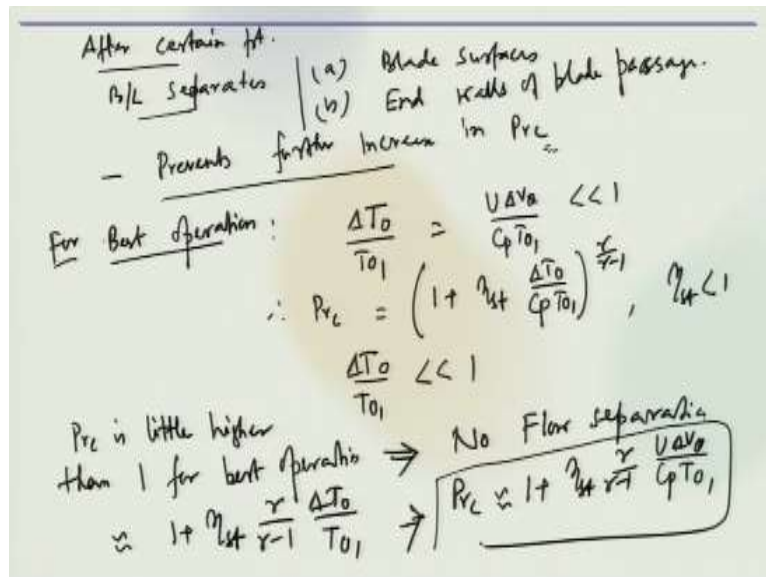 After certain pt.
B/L Separates | (a) Blade surfaces
(b) End walls of blade passage.
- Prevents further Increase in Prc
For Best operation: ΔT0/T01 = UΔVθ/CpT01 << 1
∴ Prc = (1 + ηst ΔT0/CpT01)^(γ/γ-1), ηst < 1
ΔT0/T01 << 1
Prc is little higher
than 1 for best operation ⇒ No Flow separation
≈ 1 + ηst γ/γ-1 ΔT0/T01 ⇒ Prc ≈ 1 + ηst γ/γ-1 UΔVθ/CpT01